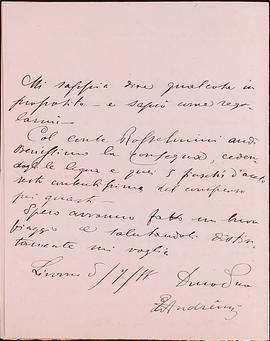 Mi sappia dire qualcosa in
proposito — e saprò come rego-
larmi —
Col conte Rosselmini andò
Benissimo la consegna, ceden-
dogli le legna e quei 5 fiaschi d'aceto
restò contentissimo del compenso
pei guasti —
Spero avranno fatto un buon
viaggio e salutandoli distin-
tamente mi voglia
Livorno 5/7/
Andreini